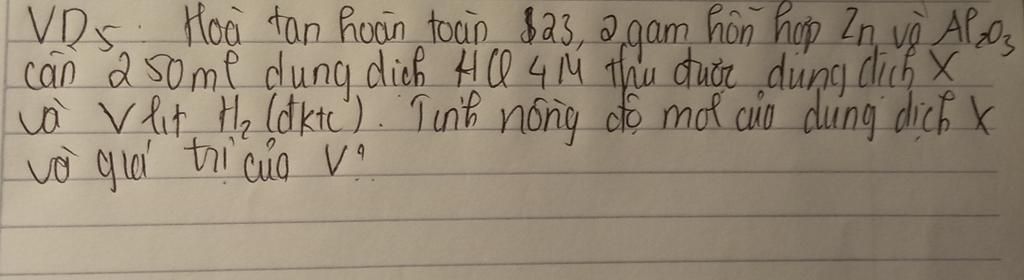 VD5: Hoà tan hoàn toàn 23,2 gam hỗn hợp Zn và Al2O3
cần 250ml dung dịch HCl 4M thu được dung dịch X
và V lit H2 (đktc). Tính nồng độ mol của dung dịch X
và giá trị của V?